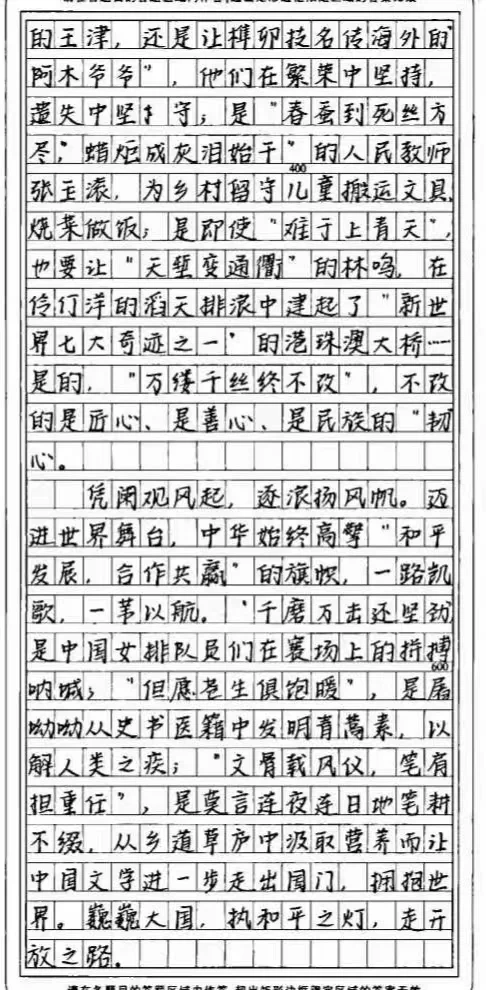 的王津，还是让榫卯技名传海外的"
阿木爷爷"，他们在繁荣中坚持，
遗失中坚守；是"春蚕到死丝方
尽，蜡炬成灰泪始干"的人民教师
400
张玉滚，为乡村留守儿童搬运文具，
烧菜做饭；是即使"难于上青天"，
也要让"天堑变通衢"的林鸣，在
伶仃洋的滔天排浪中建起了"新世
界七大奇迹之一"的港珠澳大桥……
是的，"万缕千丝终不改"，不改
的是匠心、是善心、是民族的"韧
心。
凭阑观风起，逐浪扬风帆。迈
进世界舞台，中华始终高擎"和平
发展，合作共赢"的旗帜，一路凯
歌，一苇以航。"千磨万击还坚劲
是中国女排队员们在赛场上的拼搏
600
呐喊；"但愿苍生俱饱暖"，是屠
呦呦从史书医籍中发明青蒿素，以
解人类之疾；"文骨载风仪，笔有
担重任"，是莫言连夜连日地笔耕
不缀，从乡道草庐中汲取营养而让
中国文学进一步走出国门，拥抱世
界。巍巍大国，执和平之灯，走开
放之路。